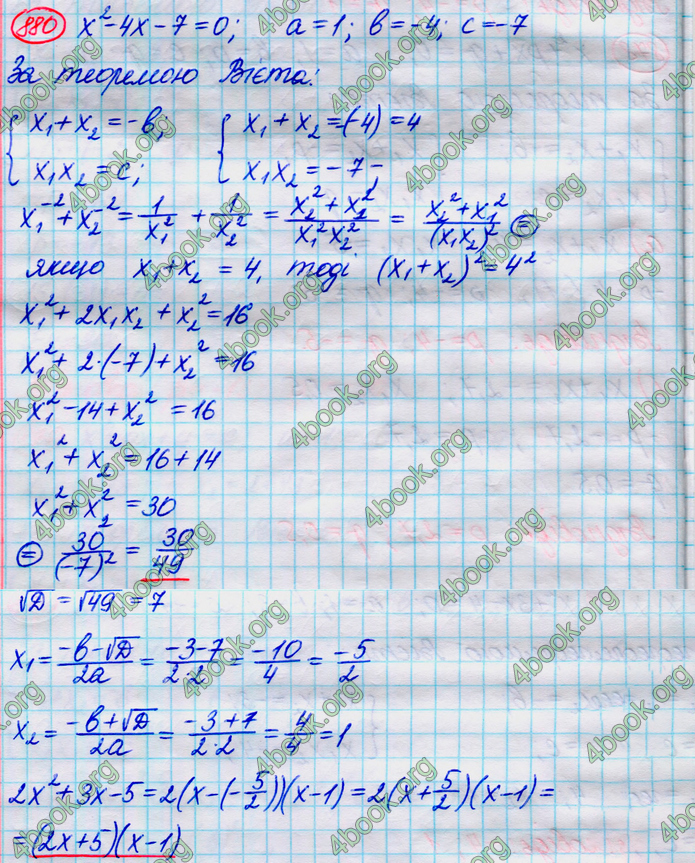 880 x²-4x-7=0; a=1; b=-4; c=-7
За теоремою Вієта:
{ x₁+x₂=-b; { x₁+x₂=-(-4)=4
{ x₁x₂=c; { x₁x₂=-7;
x₁⁻²+x₂⁻²=1/x₁²+1/x₂²=(x₂²+x₁²)/(x₁²x₂²)=(x₂²+x₁²)/(x₁x₂)² ⊜
якщо x₁+x₂=4, тоді (x₁+x₂)²=4²
x₁²+2x₁x₂+x₂²=16
x₁²+2·(-7)+x₂²=16
x₁²-14+x₂²=16
x₁²+x₂²=16+14
x₁²+x₂²=30
⊜ 30/(-7)²=30/49
√D=√49=7
x₁=(-b-√D)/2a=(-3-7)/(2·2)=-10/4=-5/2
x₂=(-b+√D)/2a=(-3+7)/(2·2)=4/4=1
2x²+3x-5=2(x-(-5/2))(x-1)=2(x+5/2)(x-1)=
=(2x+5)(x-1)
4book.org